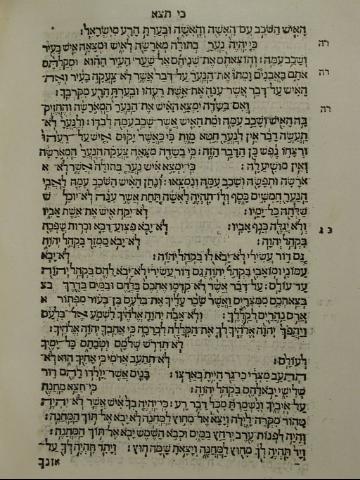 כי תצא
האיש השכב עם האשה והאשה ובערת הרע מישראל:
כי יהיה נער בתולה מארשה לאיש ומצאה איש בעיר
ושכב עמה: והוצאתם את שניהם אל שער העיר ההוא וסקלתם
אתם באבנים ומתו את הנער על דבר אשר לא צעקה בעיר ואת
האיש על דבר אשר ענה את אשת רעהו ובערת הרע מקרבך:
ואם בשדה ימצא האיש את הנער המארשה והחזיק
בה האיש ושכב עמה ומת האיש אשר שכב עמה לבדו: ולנער לא
תעשה דבר אין לנער חטא מות כי כאשר יקום איש על רעהו
ורצחו נפש כן הדבר הזה: כי בשדה מצאה צעקה הנער המארשה
ואין מושיע לה: כי ימצא איש נער בתולה אשר לא
ארשה ותפשה ושכב עמה ונמצאו: ונתן האיש השכב עמה לאבי
הנער חמשים כסף ולו תהיה לאשה תחת אשר ענה לא יוכל
שלחה כל ימיו: לא יקח איש את אשת אביו
ולא יגלה כנף אביו: לא יבא פצוע דכא וכרות שפכה
בקהל יהוה: לא יבא ממזר בקהל יהוה
גם דור עשירי לא יבא לו בקהל יהוה: לא יבא
עמוני ומואבי בקהל יהוה גם דור עשירי לא יבא להם בקהל יהוה
עד עולם: על דבר אשר לא קדמו אתכם בלחם ובמים בדרך
בצאתכם ממצרים ואשר שכר עליך את בלעם בן בעור מפתור
ארם נהרים לקללך: ולא אבה יהוה אלהיך לשמע אל בלעם
ויהפך יהוה אלהיך לך את הקללה לברכה כי אהבך יהוה אלהיך:
לא תדרש שלמם וטבתם כל ימיך
לעולם: לא תתעב אדמי כי אחיך הוא לא
תתעב מצרי כי גר היית בארצו: בנים אשר יולדו להם דור
שלישי יבא להם בקהל יהוה: כי תצא מחנה
על איביך ונשמרת מכל דבר רע: כי יהיה בך איש אשר לא יהיה
טהור מקרה לילה ויצא אל מחוץ למחנה לא יבא אל תוך המחנה:
והיה לפנות ערב ירחץ במים וכבא השמש יבא אל תוך המחנה:
ויד תהיה לך מחוץ למחנה ויצאת שמה חוץ: ויתד תהיה לך על
אזנך